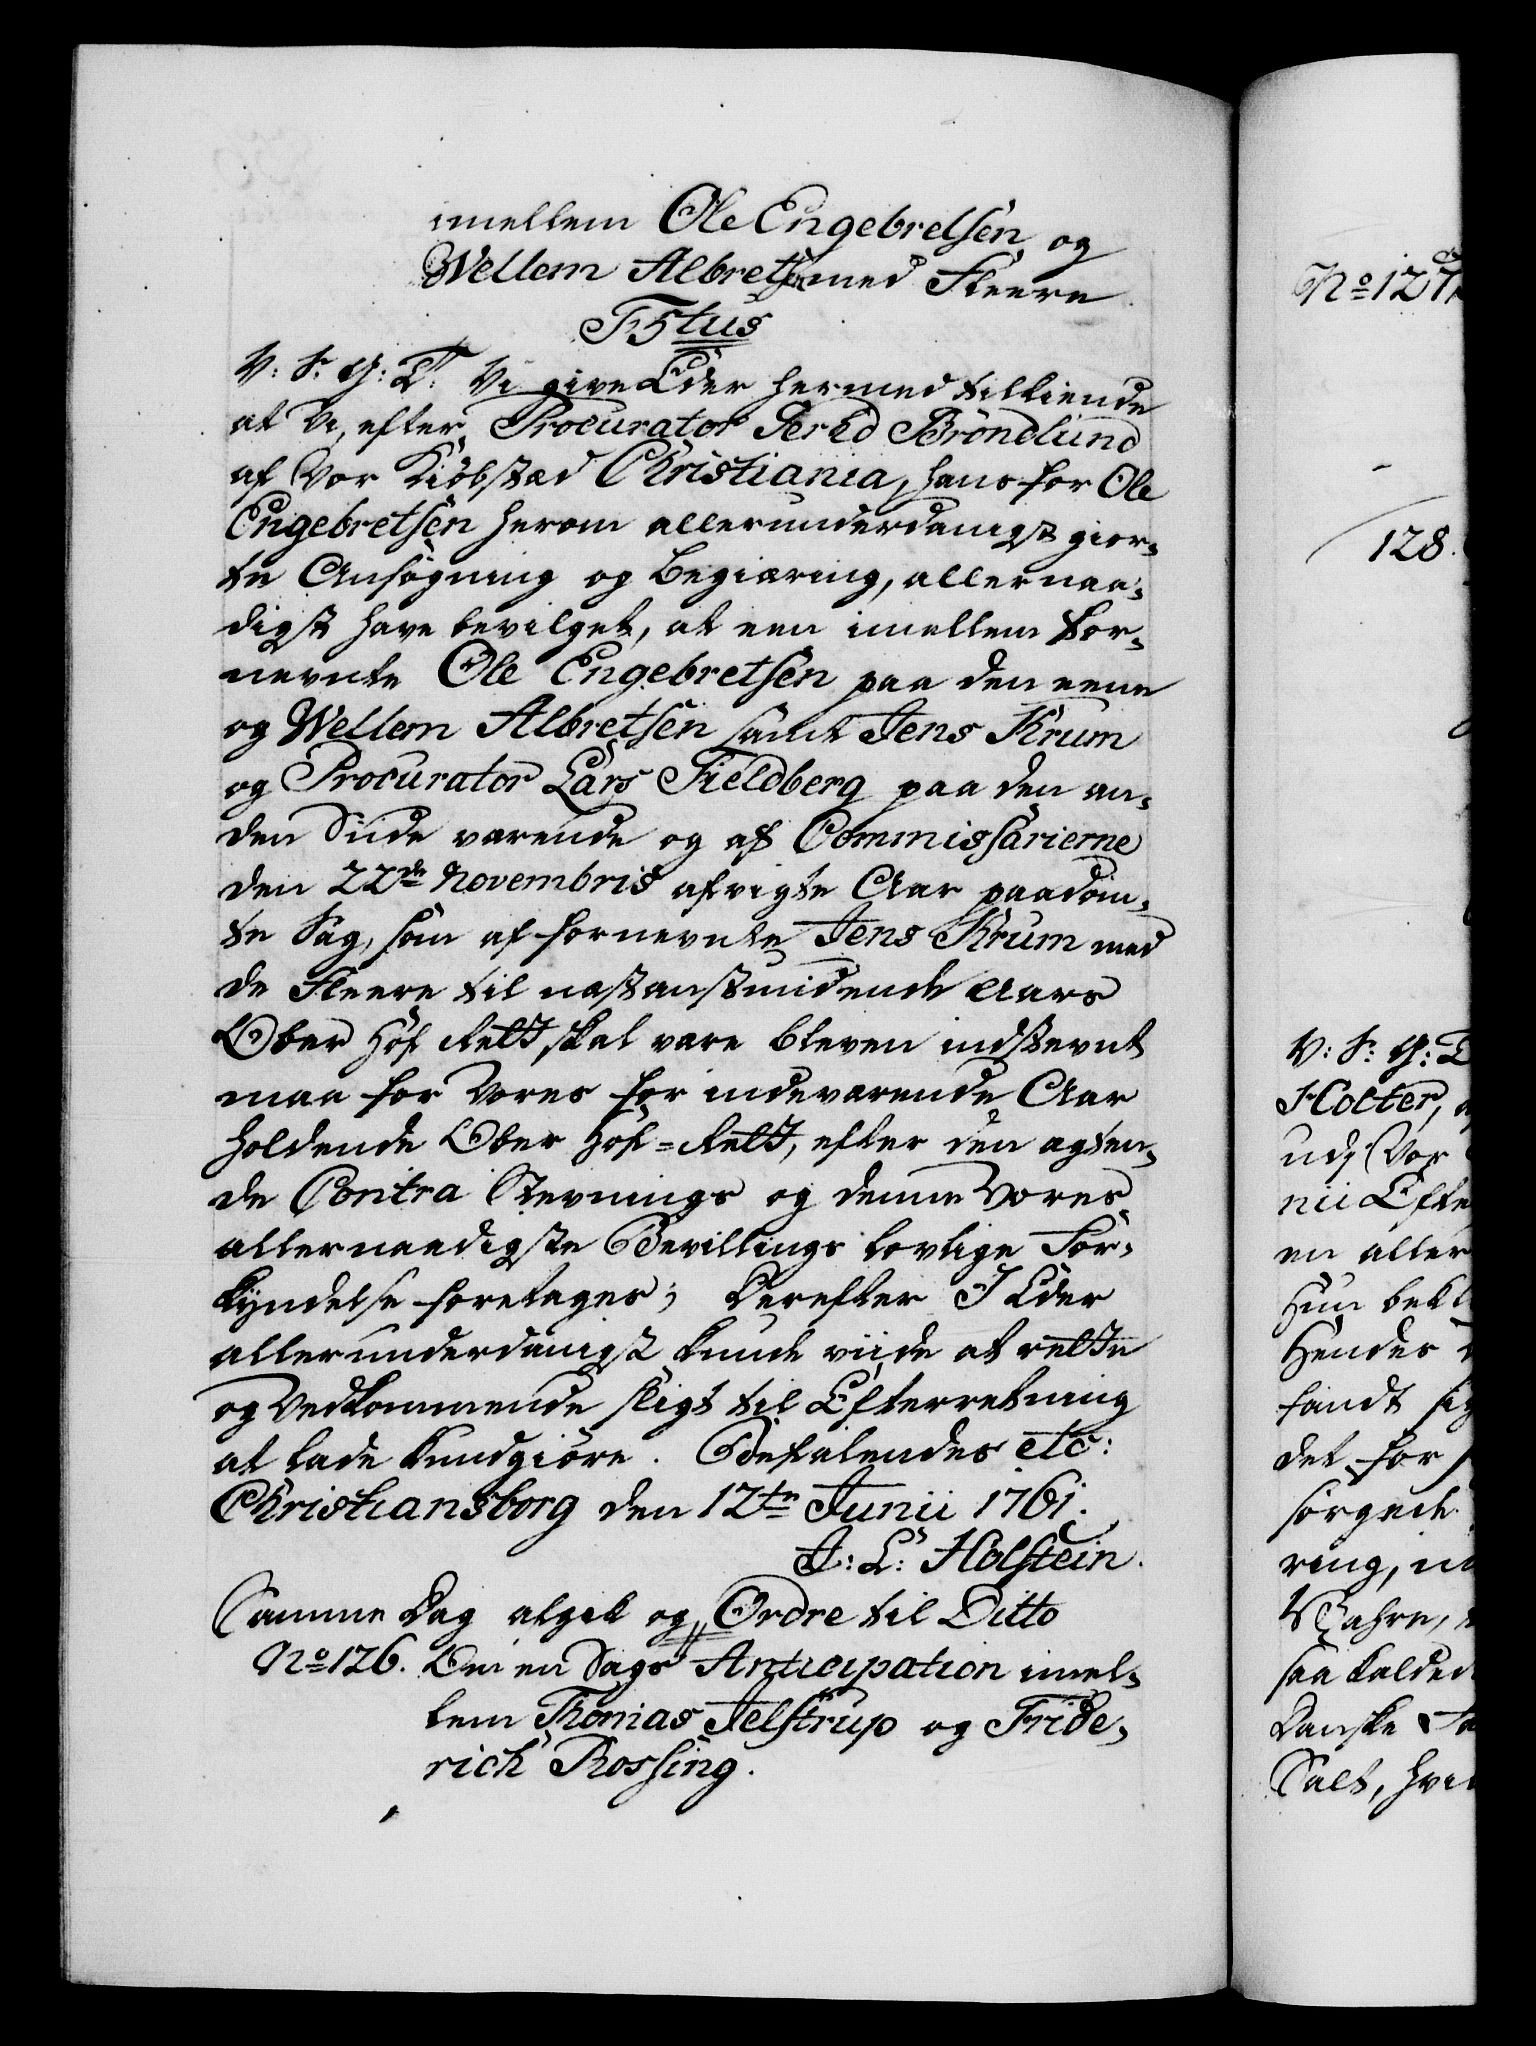 imellem Ole Engebretsen og
Wellem Albretsen med Fleere
F5tus
V: S: G: T: Vi give Eder hermed tilkiende
at Vi, efter Procurator Bröndlund
af Vor Kiöbstæd Christiania, hans for Ole
Engebretsen herom allerunderdanigst gior-
te Ansögning og Begiæring, allernaa-
digst have bevilget, at een imellem for-
nevnte Ole Engebretsen paa den eene
og Wellem Albretsen samt Jens Krum
og Procurator Lars Fieldberg paa den an-
den Siide værende og af Commissarierne
den 22de Novembris afvigte Aar paadöm-
te Sag, som af fornevnte Jens Krum med
de Fleere til næstanstundende Aars
Ober Hof Rett skal være bleven indstevnt
maa for Vores for indeværende Aar
holdende Ober Hof-Rett, efter den agten-
de Contra Stevnings og denne Vores
allernaadigste Bevillings lovlige For-
kyndelse foretages; Derefter I Eder
allerunderdanigst kunde viide at rette
og Vedkommende sligt til Efterretning
at lade kundgiöre. Befalendes etc:
Christiansborg den 12te Junii 1761.
J: L: Holstein.
Samme Dag afgik og Ordre til Ditto
No 126. Om en Sags Anticipation imel-
lem Thomas Jelstrup og Fride-
rich Rossing.
No 127
128.
V: S: G: T
Holter,
udj Vor
nii Efte
en aller
Hun bekl
Hendes
fandt sig
det for
sörgede
ring, in
saa kalded
Danske
Salt, hvi